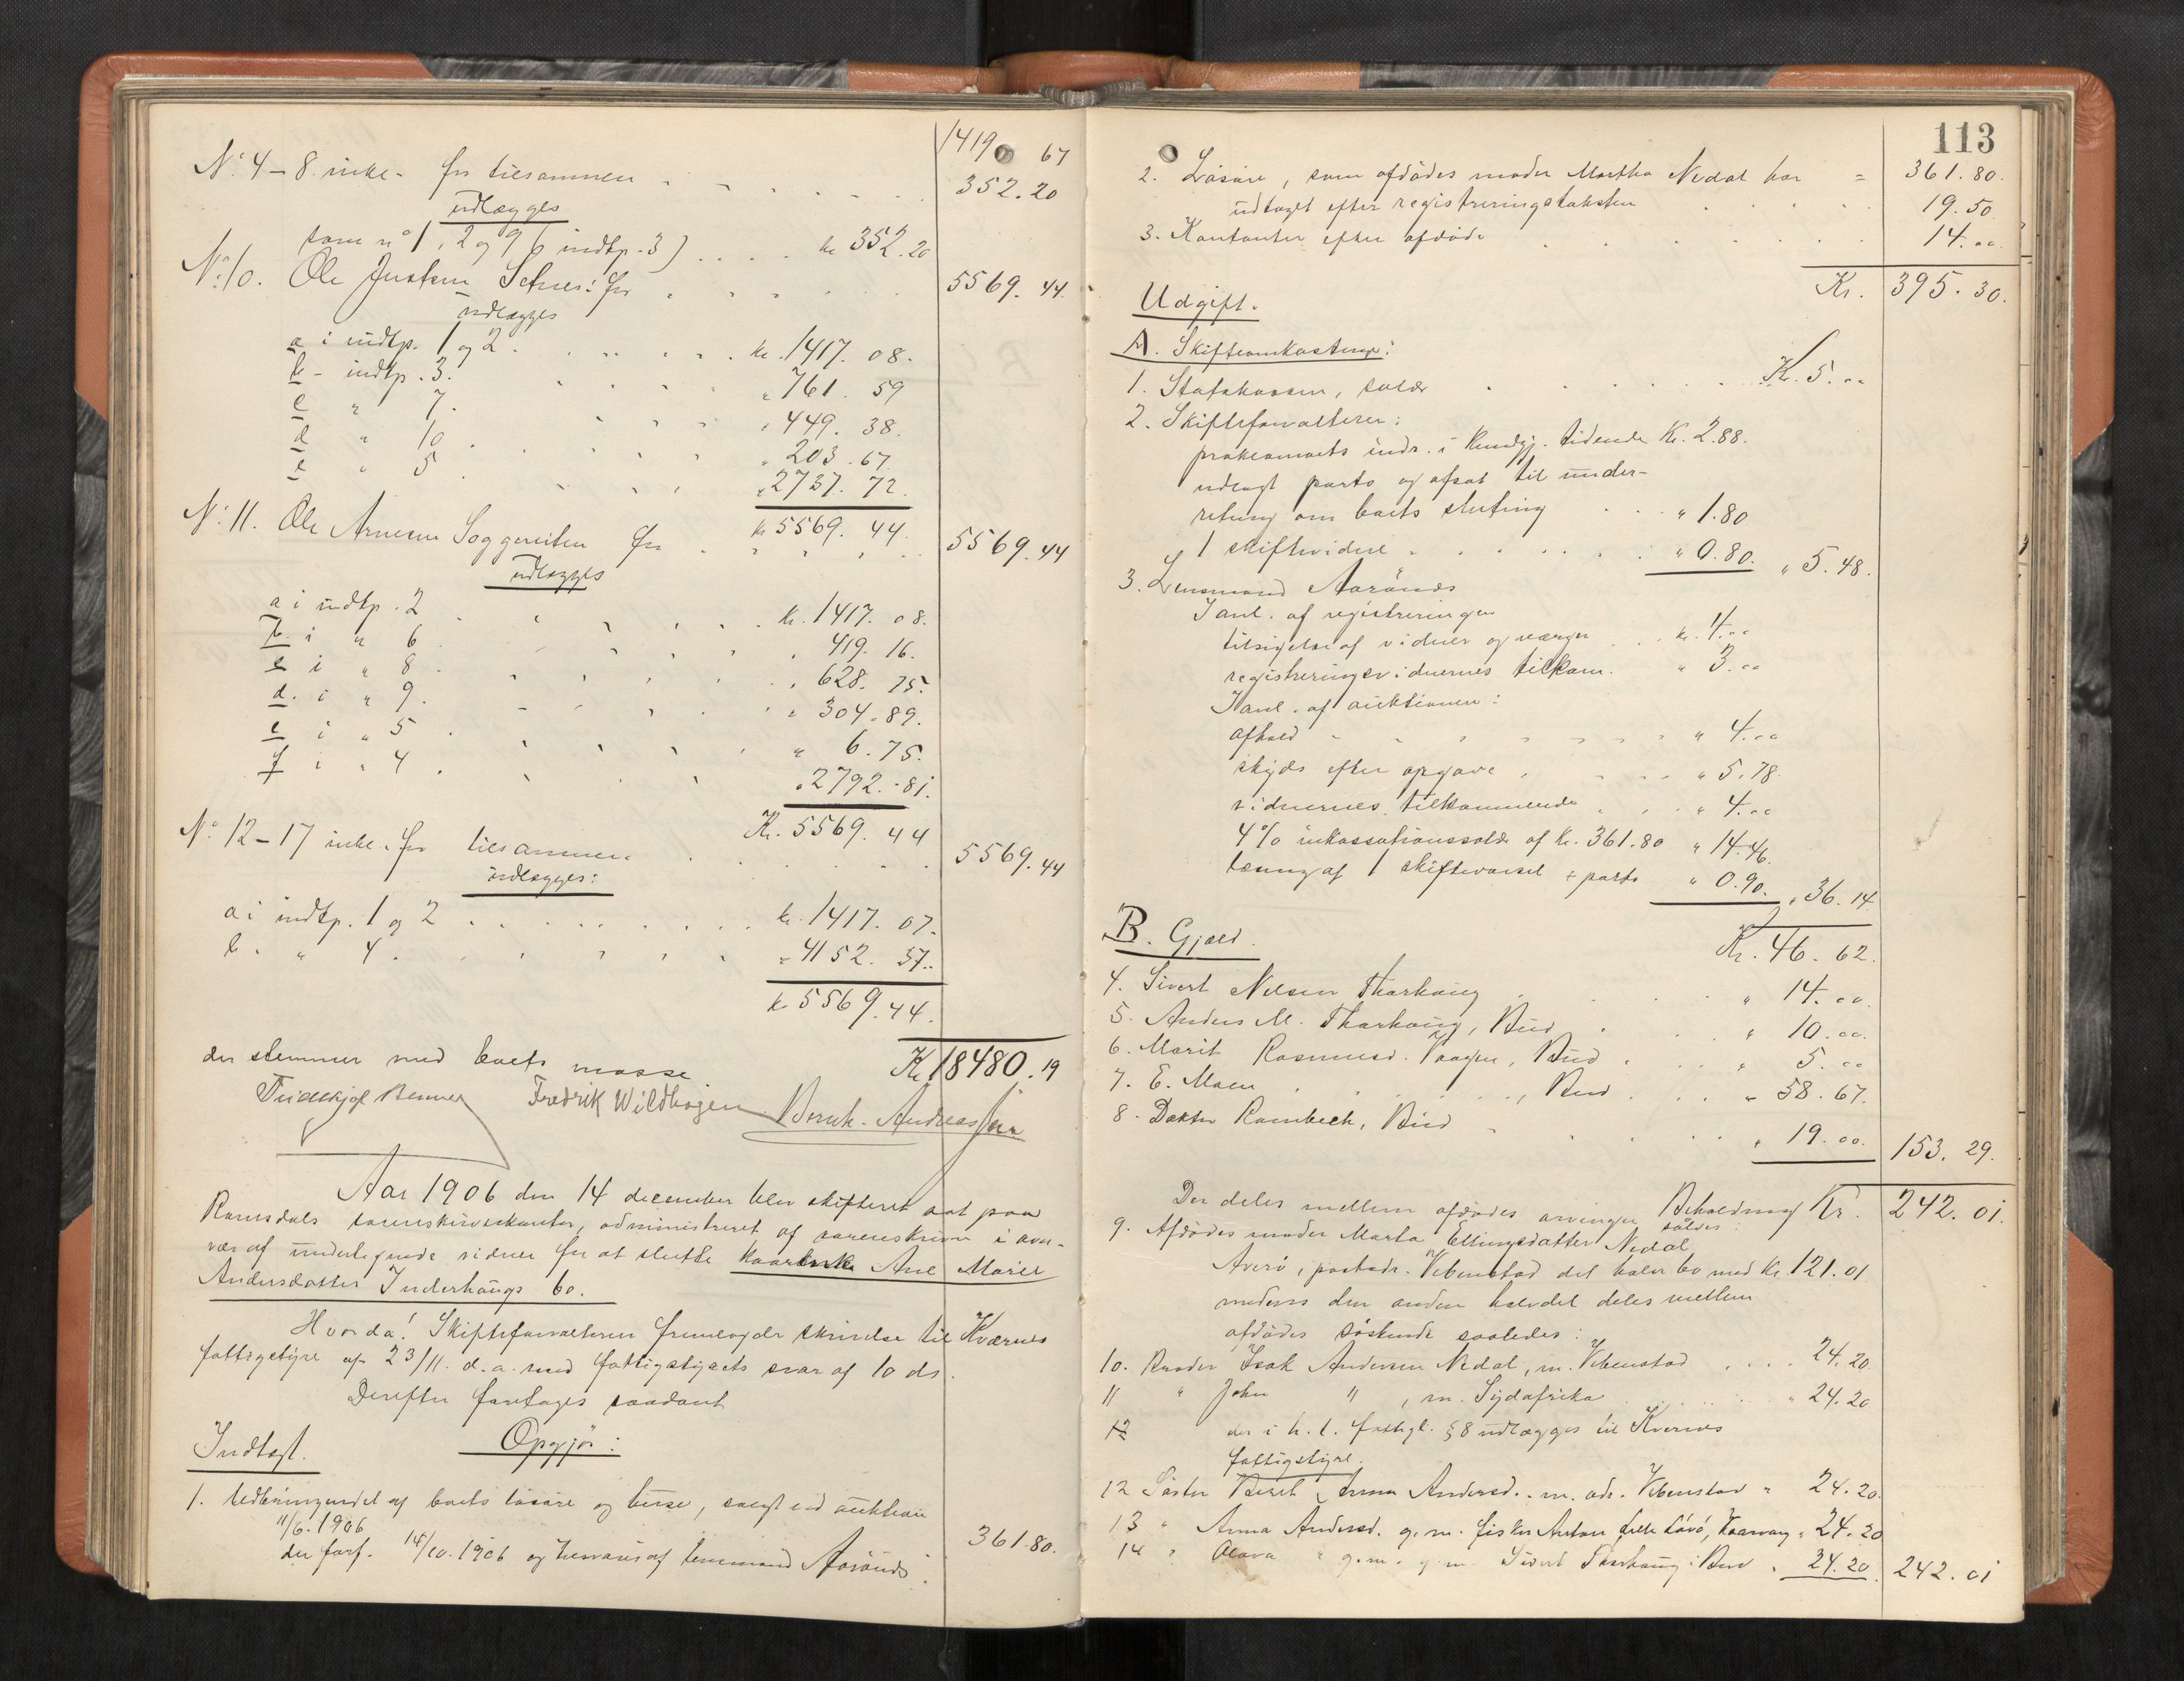 1419 67
No. 4 – 8 inkl. for tilsammen 352.20
udlægges
som no 1, 2 og 9 (indtp. 3) kr 352.20
No. 10. Ole Justsen Setnes: for 5569.44.
udlægges
a i indtp. 1 og 2. kr. 1417.08.
b - indtp. 3. " 761.59
c " 7. " 449.38.
d " 10. " 203.67.
e " 5. " 2737.72.
kr 5569.44.
No. 11. Ole Arnesen Soggemoen for 5569.44
udlægges
a i indtp. 2 kr. 1417.08.
b. i " 6 " 419.16.
c i " 8 " 628.75.
d. i " 9. " 304.89.
e i " 5 " 6.75.
f i " 4. " 2792.81.
Kr. 5569.44
No. 12 – 17 inkl. for tilsammen 5569.44
udlægges:
a i indtp. 1 og 2 kr. 1417.07.
b. " 4. " 4152.37.
kr 5569.44.
Kr. 18480.19
der stemmer med boets masse.
Fredrik Wildhagen Bernh. Andreassen
Aar 1906 den 14 december blev skifteret sat paa
Romsdals sorenskriverkontor, administreret af sorenskriver i over-
vær af undertegnede vidner for at slutte Ane Marie
Andersdatter Inderhaugs bo.
Hvorda! Skifteforvalteren fremlagde skrivelse til Kværnes
fattigstyre af 23/11. d.a. med fattigstyrets svar af 10 ds.
Derefter foretages saadant
Opgjør:
Indtægt.
1. Udbringendet af boets løsøre og huse, solgt ved auktion
11/6. 1906
der forf. 14/10. 1906 og hvorav af lensmand Aarønes. 361.80.
113
361.80.
2. Løsøre, som afdødes moder Martha Nedal har =
udtaget efter registreringstaksten 19.50
3. Kontanter efter afdøde 14.00
Kr. 395.30.
Udgift.
A. Skifteomkostning:
1. Statskassen, salær Kr. 5.00
2. Skifteforvalteren:
proklamaets indr. i Kundgj. tidende Kr. 2.88.
udlagt porto og afsat til under-
retning om boets slutning " 1.80
1 skiftevidne " 0.80. " 5.48.
3. Lensmand Aarønes
I anl. af registreringen
tilsigelse af vidner og værger kr. 4.00
registreringsvidnernes tilkom. " 3.00
I anl. af auktionen:
afhold " 4.00
skyds efter opgave " 5.78.
vidnernes tilkommende " 4.00
4% inkassationssalær af Kr. 361.80 " 14.46.
læsning af 1 skiftevarsel + porto " 0.90. " 36.14
Kr. 46.62.
B. Gjæld.
4. Sivert Nilsen Tharhaug " 14.00.
5. Anders M. Tharhaug, Bud " 10.00.
6. Marit Rasmusd. Vaagen, Bud " 5.00
7. E. Moen, Bud " 58.67.
8. Doktor Rambech, Bud " 19.00. 153.29.
Beholdning Kr. 242.01.
Der deles mellem afdødes arvinger saaledes:
9. Afdødes moder Marta Ellingsdatter Nedal
Averø, postadr. Vebenstad det halve bo med kr. 121.01
medens den anden halvdel deles mellem
afdødes søskende saaledes:
10. Broder Isak Andersen Nedal, m. Vebenstad 24.20
11 " John " , m. Sydafrika " 24.20
12 der i h. t. fattigl. § 8 udlægges til Kvernes
fattigstyre.
12 Søster Berit Anna Andersd. m. adr. Vebenstad " 24.20.
13 " Anna Andersd. g. m. fisker Anton Løvø, Kaarvaag " 24.20
14 " Olava " g. m. Sivert Tharhaug i Bud " 24.20 242.01